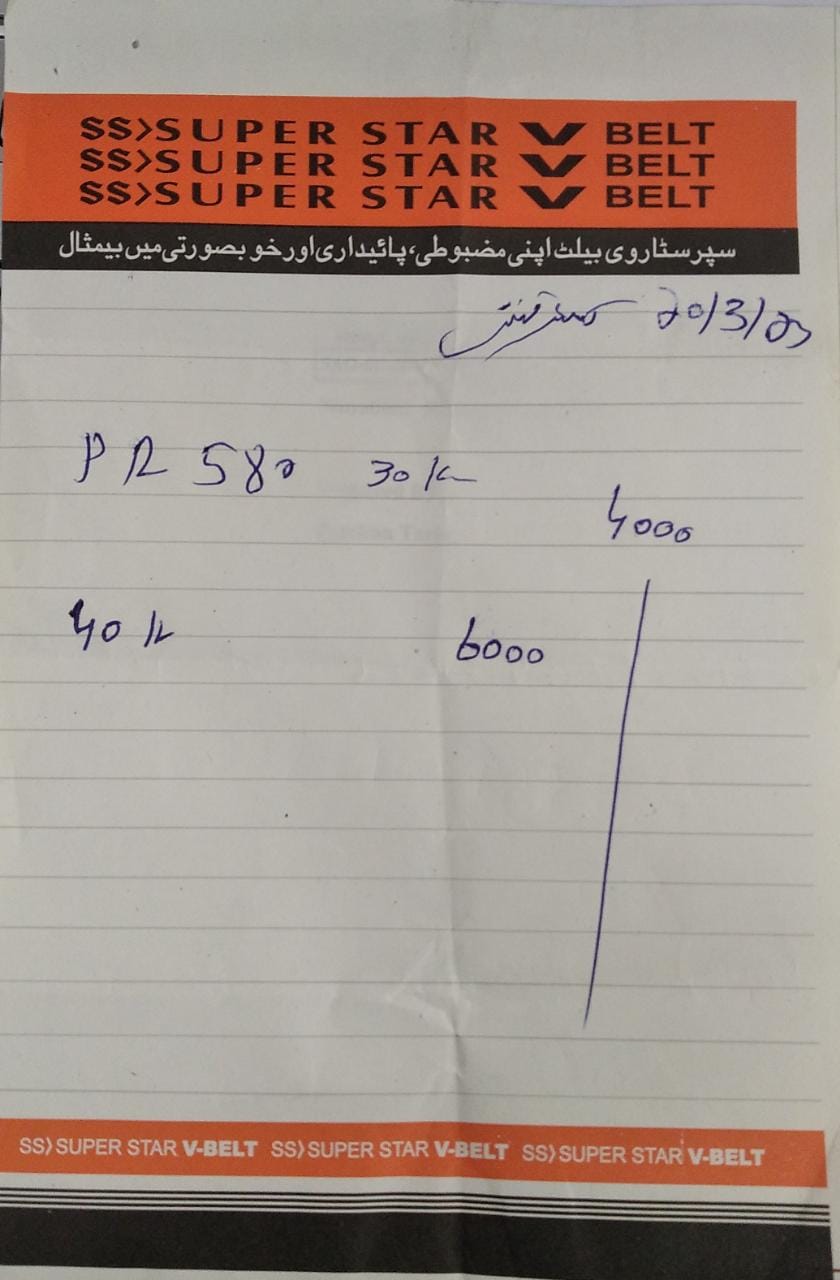 SS>SUPER STAR V BELT
SS>SUPER STAR V BELT
SS>SUPER STAR V BELT
سپر سٹار وی بیلٹ اپنی مضبوطی، پائیداری اور خوبصورتی میں بیمثال
20/3/23
PR 580 30 K
4000
40 K 6000
SS>SUPER STAR V-BELT SS>SUPER STAR V-BELT SS>SUPER STAR V-BELT